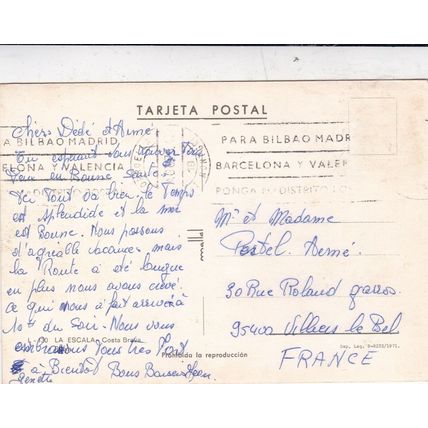 TARJETA POSTAL
Chers Dédé et Aimé
PARA BILBAO MADRID
BARCELONA Y VALENCIA
PONGA Nº DISTRITO POSTAL
En espérant vous trouver Tous
Deux en Bonne Santé
Ici Tout va bien. le Temps
est Splendide et la mer
est Bonne. Nous passons
d'agréable vacances mais
la Route a été longue
en plus nous avons crevé.
ce qui nous a fait arrivé à
10h du Soir. Nous vous
embrassons Tous Très Fort
à Bientôt Bons Baisers
Ginette
L-30 LA ESCALA. Costa Brava
Prohibida la reproducción
PARA BILBAO MADR
BARCELONA Y VALEN
PONGA Nº DISTRITO
Mr et Madame
Aimé.
30 Rue Roland garros.
95400 Villiers le Bel
FRANCE
Dep. Leg. B-8255/1971.